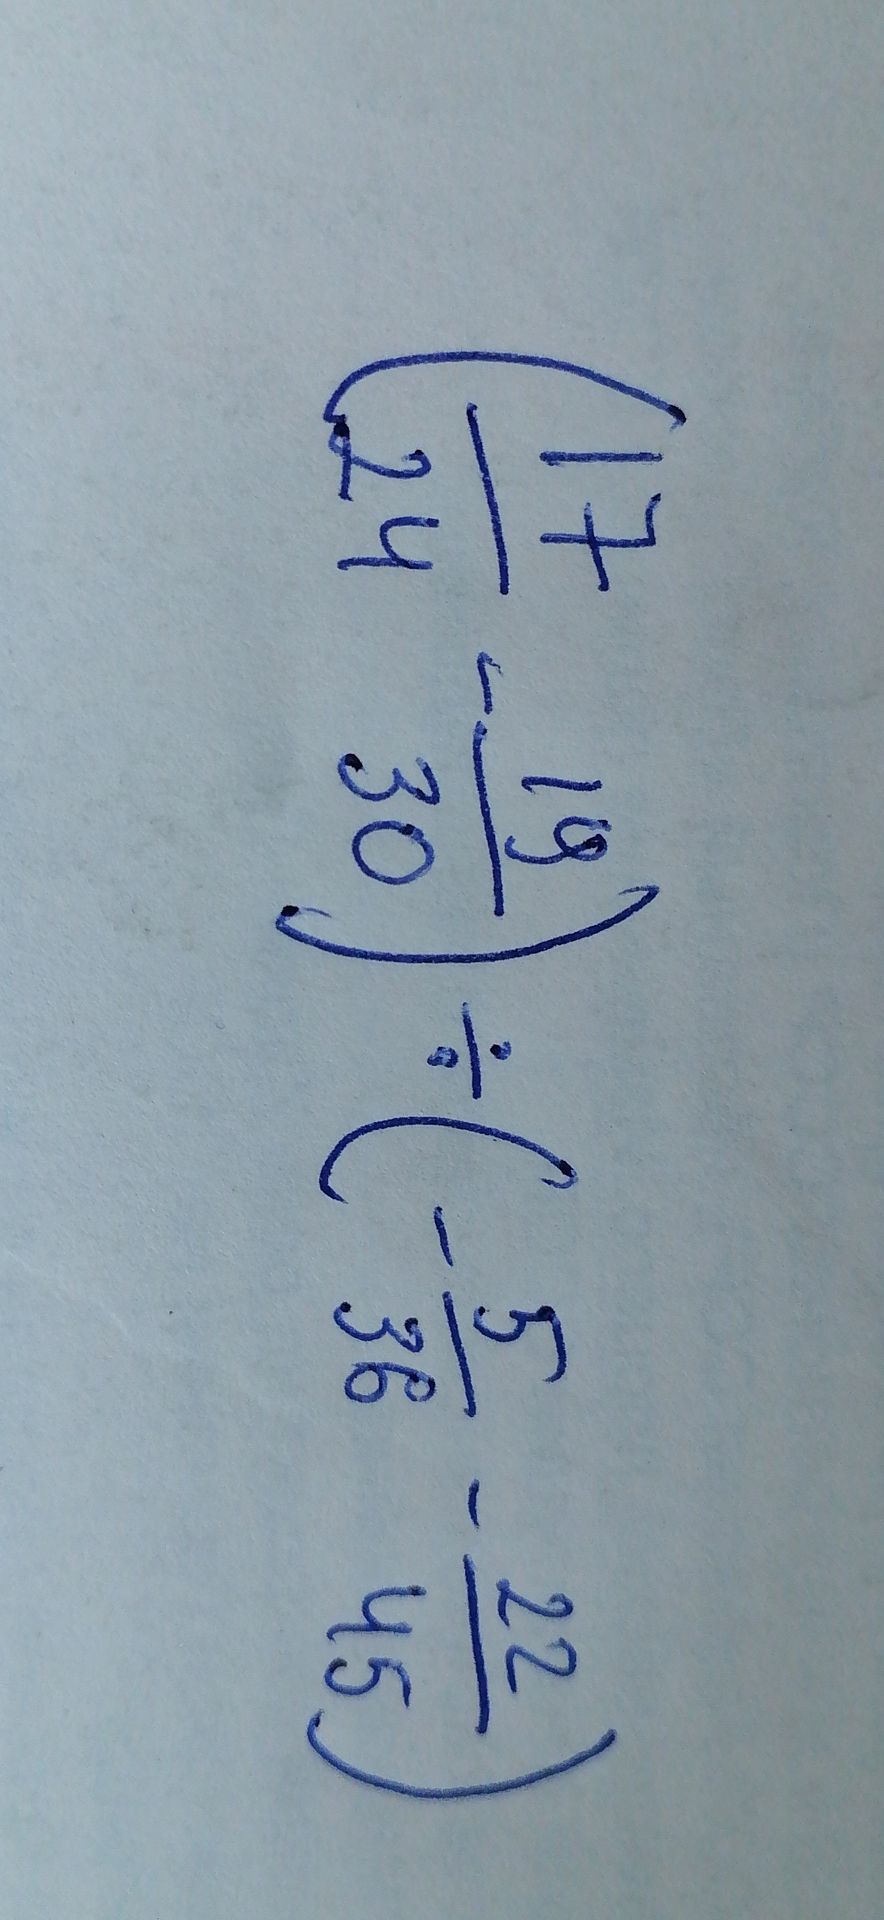 (17/24 - 19/30) ÷ (- 5/36 - 22/45)